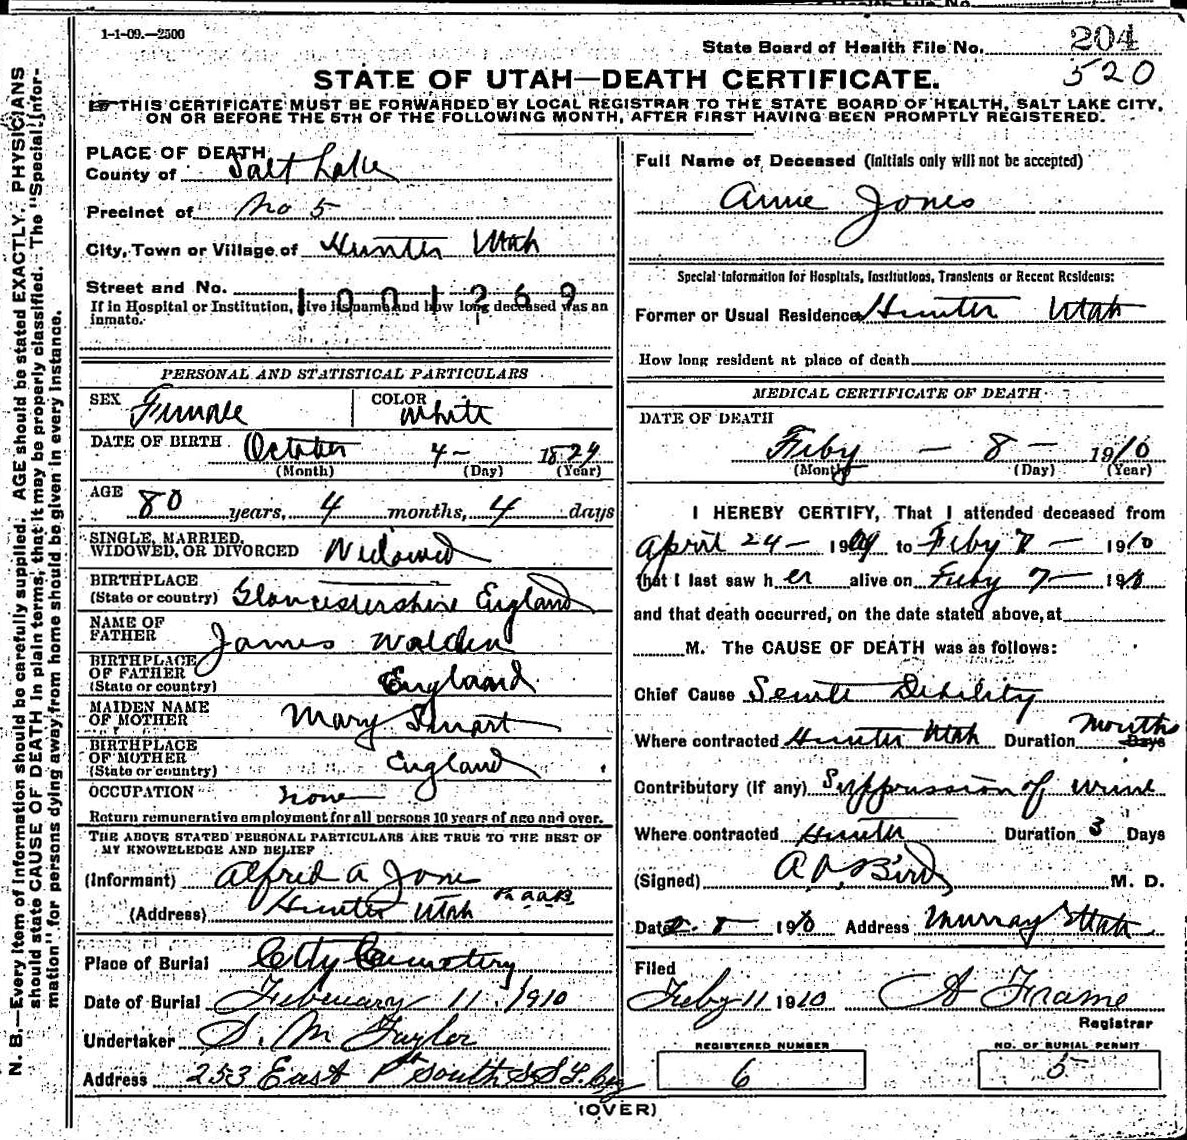 1-1-09.—2500
State Board of Health File No. 204
520
STATE OF UTAH—DEATH CERTIFICATE.
THIS CERTIFICATE MUST BE FORWARDED BY LOCAL REGISTRAR TO THE STATE BOARD OF HEALTH, SALT LAKE CITY,
ON OR BEFORE THE 5TH OF THE FOLLOWING MONTH, AFTER FIRST HAVING BEEN PROMPTLY REGISTERED.
N. B.—Every item of information should be carefully supplied. AGE should be stated EXACTLY. PHYSICIANS
should state CAUSE OF DEATH in plain terms, that it may be properly classified. The "Special Infor-
mation" for persons dying away from home should be given in every instance.
PLACE OF DEATH
County of Salt Lake
Precinct of No 5
City, Town or Village of Hunter Utah
Street and No.
1001269
If in Hospital or Institution, give its name and how long deceased was an
inmate.
PERSONAL AND STATISTICAL PARTICULARS
SEX Female COLOR White
DATE OF BIRTH October 4 — 1829
(Month) (Day) (Year)
AGE 80 years, 4 months, 4 days
SINGLE, MARRIED,
WIDOWED, OR DIVORCED Widowed
BIRTHPLACE
(State or country) Gloucestershire England
NAME OF
FATHER James Walden
BIRTHPLACE
OF FATHER
(State or country) England
MAIDEN NAME
OF MOTHER Mary
BIRTHPLACE
OF MOTHER
(State or country) England
OCCUPATION none
Return remunerative employment for all persons 10 years of age and over.
THE ABOVE STATED PERSONAL PARTICULARS ARE TRUE TO THE BEST OF
MY KNOWELEDGE AND BELIEF
(Informant) Alfred A Jone
(Address) Hunter Utah
Place of Burial City Cemetery
Date of Burial February 11, 1910
Undertaker S. M. Taylor
Address 253 East South
Full Name of Deceased (Initials only will not be accepted)
Annie Jones
Special Information for Hospitals, Institutions, Transients or Recent Residents:
Former or Usual Residence Hunter Utah
How long resident at place of death
MEDICAL CERTIFICATE OF DEATH
DATE OF DEATH
Feby — 8 — 1910
(Month) (Day) (Year)
I HEREBY CERTIFY, That I attended deceased from
April 24 — 1909 to Feby 7 — 1910
that I last saw her alive on Feby 7 — 1910
and that death occurred, on the date stated above, at
M. The CAUSE OF DEATH was as follows:
Chief Cause Senile Debility
Where contracted Hunter Utah Duration Months Days
Contributory (If any) Suppression of urine
Where contracted Hunter Duration 3 Days
(Signed) Bird M. D.
Date 2-8 1910 Address Murray Utah
Filed
Feby 11 1910 A Frame
Registrar
REGISTERED NUMBER
6
NO. OF BURIAL PERMIT
5
(OVER)